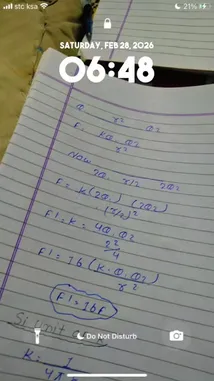 stc ksa
21%
SATURDAY, FEB 28, 2026
06:48
Q r² Q₂
F = KQ₁Q₂
r²
Now
2Q₁ r/2 2Q₂
F = K(2Q₁)(2Q₂)
(r/2)²
F' = K = 4Q₁Q₂
r²
4
F' = 16 (K·Q₁Q₂)
r²
F' = 16F
Si unit
Do Not Disturb
K = 1
4π